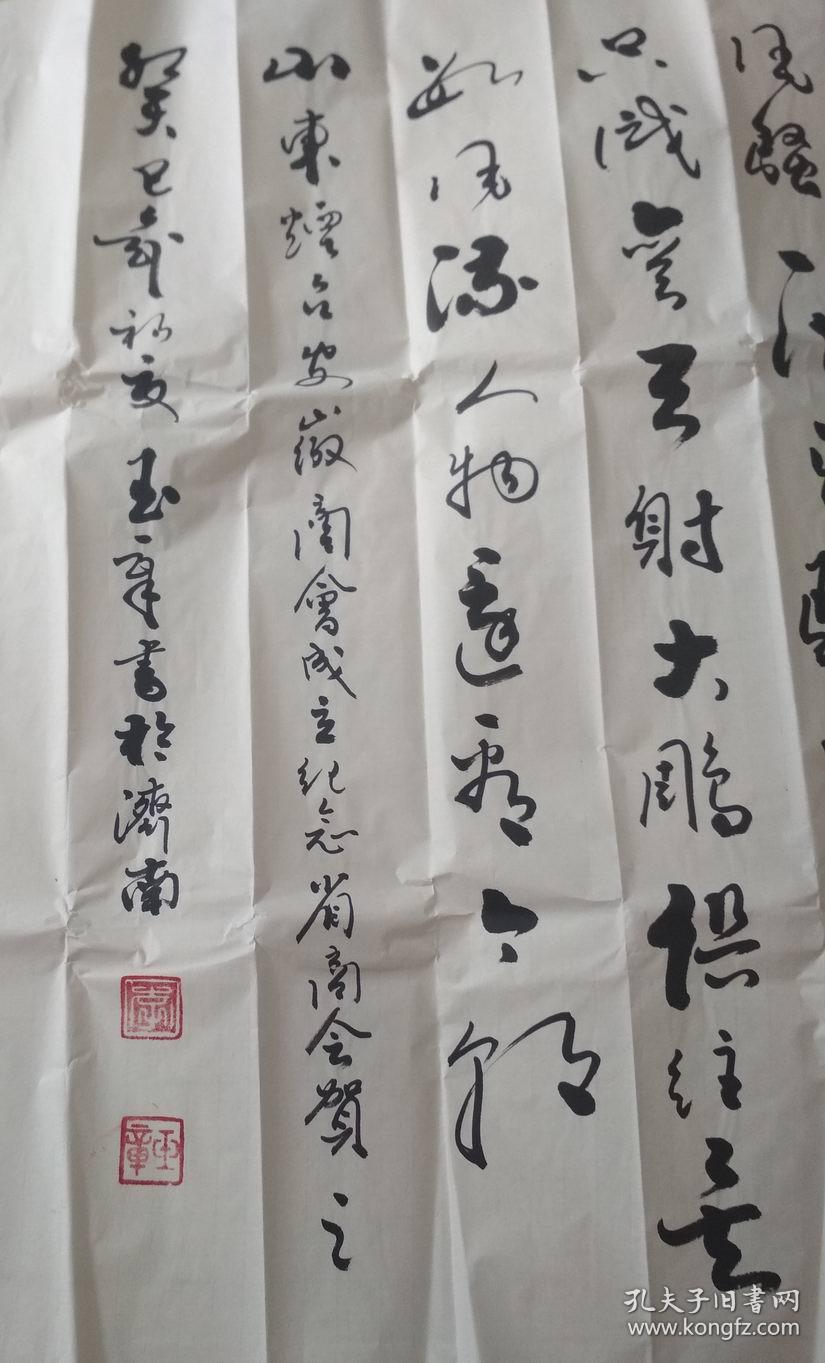 风骚一代
只识弯弓射大鵰俱往矣
数风流人物还看今朝
山東煙台安徽商會成立纪念省商会賀之
癸巳年初夏玉章書於濟南
玉章
孔夫子旧书网
www.kongfz.com